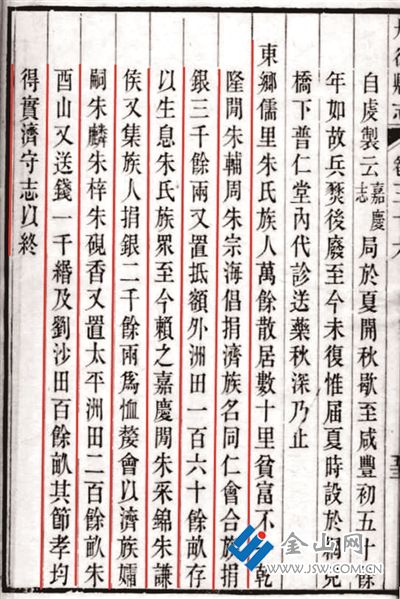 縣志
卷三十六
自虔製云嘉慶志局於夏開秋歇至咸豐初五十餘
年如故兵燹後廢至今未復惟屆夏時設於網
橋下普仁堂內代診送藥秋深乃止
東鄉儒里朱氏族人萬餘散居數十里貧富不乾
隆閒朱輔周朱宗海倡捐濟族名同仁會合族捐
銀三千餘兩又置抵額外洲田一百六十餘畝存
以生息朱氏族眾至今賴之嘉慶閒朱采錦朱謙
侯又集族人捐銀二千餘兩爲恤嫠會以濟族孀
嗣朱麟朱梓朱硯香又置太平洲田二百餘畝朱
酉山又送錢一千緡及劉沙田百餘畝其節孝均
得實濟守志以終
金山网
WWW.JSW.COM.CN